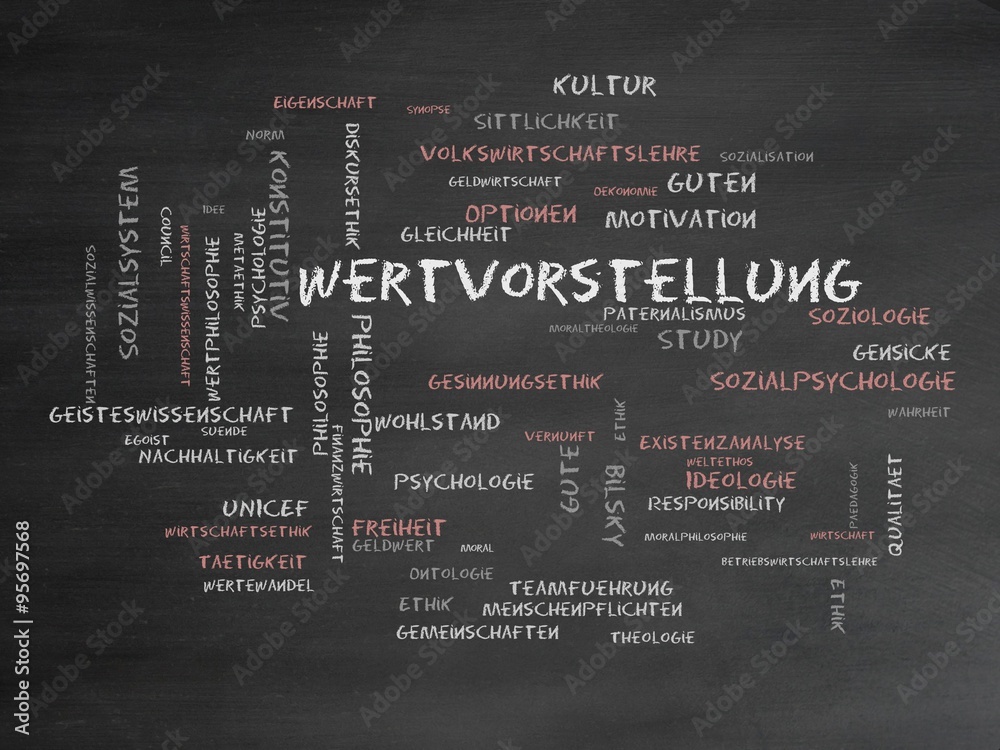 KULTUR
EIGENSCHAFT
SYNOPSE
SITTLICHKEIT
NORM
DISKURSETHIK
VOLKSWIRTSCHAFTSLEHRE
SOZIALISATION
KONSTITUTIV
SOZIALSYSTEM
GELDWIRTSCHAFT
OEKONOMIE
GUTEN
IDEE
COUNCIL
PSYCHOLOGIE
OPTIONEN
MOTIVATION
WIRTSCHAFTSWISSENSCHAFT
METAETHIK
WERTPHILOSOPHIE
GLEICHHEIT
SOZIALWISSENSCHAFTEN
WERTVORSTELLUNG
PATERNALISMUS
SOZIOLOGIE
MORALTHEOLOGIE
STUDY
PHILOSOPHIE
PHILOSOPHIE
GENSICKE
GESINNUNGSETHIK
SOZIALPSYCHOLOGIE
GEISTESWISSENSCHAFT
WOHLSTAND
ETHIK
WAHRHEIT
SUENDE
EGOIST
FINANZWIRTSCHAFT
VERNUNFT
EXISTENZANALYSE
NACHHALTIGKEIT
GUTE
WELTETHOS
BILSKY
PSYCHOLOGIE
IDEOLOGIE
PAEDAGOGIK
QUALITAET
RESPONSIBILITY
UNICEF
WIRTSCHAFTSETHIK
FREIHEIT
MORALPHILOSOPHIE
WIRTSCHAFT
GELDWERT
MORAL
TAETIGKEIT
BETRIEBSWIRTSCHAFTSLEHRE
ONTOLOGIE
WERTEWANDEL
TEAMFUEHRUNG
ETHIK
ETHIK
MENSCHENPFLICHTEN
GEMEINSCHAFTEN
THEOLOGIE
Adobe Stock | #95697568
Adobe Stock